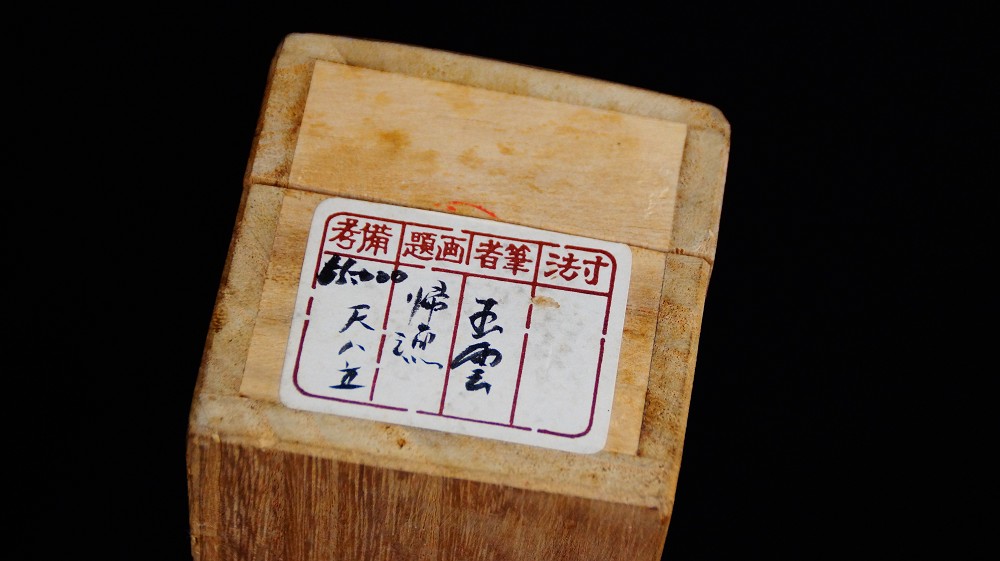 寸法
筆者
玉雲
画題
帰漁
備考
65000
天八立